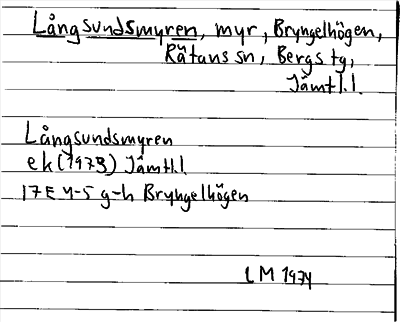 Långsundsmyren, myr, Bryngelhögen,
Rätans sn, Bergs tg,
Jämtl.l.
Långsundsmyren
ek (1973) Jämtl.l
17E 4-5 g-h Bryngelhögen
LM 1974